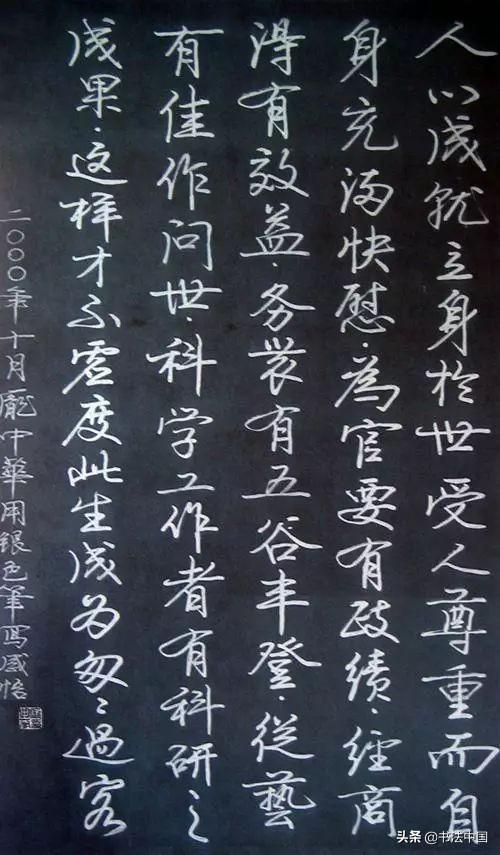 人以成就立身於世受人尊重而自
身充满快慰、為官要有政績、经商
得有效益、务農有五谷丰登、從藝
有佳作问世、科学工作者有科研之
成果、这样才不虚度此生成为匆々過客
二〇〇〇年十月龐中華用银色筆寫感悟
头条@书法中国